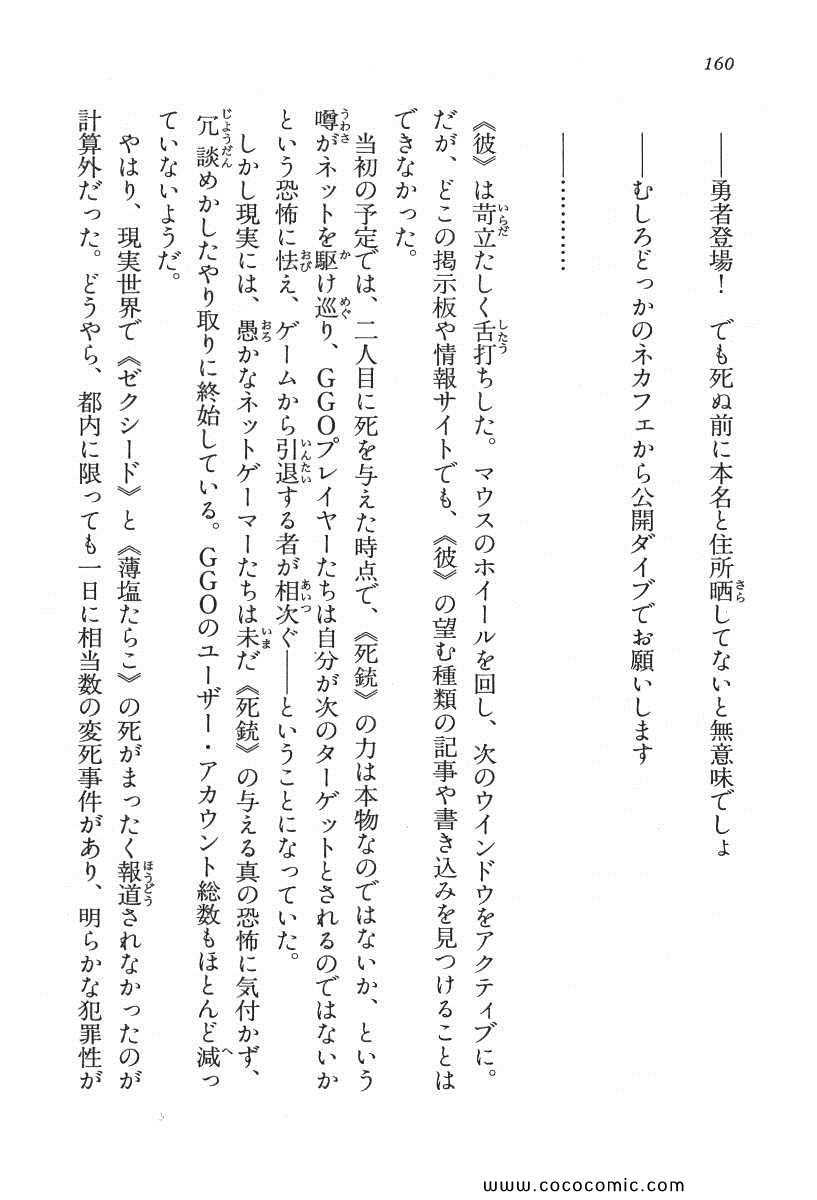 160
――勇者登場！　でも死ぬ前に本名と住所晒してないと無意味でしょ
――むしろどっかのネカフェから公開ダイブでお願いします
――…………
《彼》は苛立たしく舌打ちした。マウスのホイールを回し、次のウインドウをアクティブに。
だが、どこの掲示板や情報サイトでも、《彼》の望む種類の記事や書き込みを見つけることは
できなかった。
当初の予定では、二人目に死を与えた時点で、《死銃》の力は本物なのではないか、という
噂がネットを駆け巡り、ＧＧＯプレイヤーたちは自分が次のターゲットとされるのではないか
という恐怖に怯え、ゲームから引退する者が相次ぐ――ということになっていた。
しかし現実には、愚かなネットゲーマーたちは未だ《死銃》の与える真の恐怖に気付かず、
冗談めかしたやり取りに終始している。ＧＧＯのユーザー・アカウント総数もほとんど減っ
ていないようだ。
やはり、現実世界で《ゼクシード》と《薄塩たらこ》の死がまったく報道されなかったのが
計算外だった。どうやら、都内に限っても一日に相当数の変死事件があり、明らかな犯罪性が
www.cococomic.com